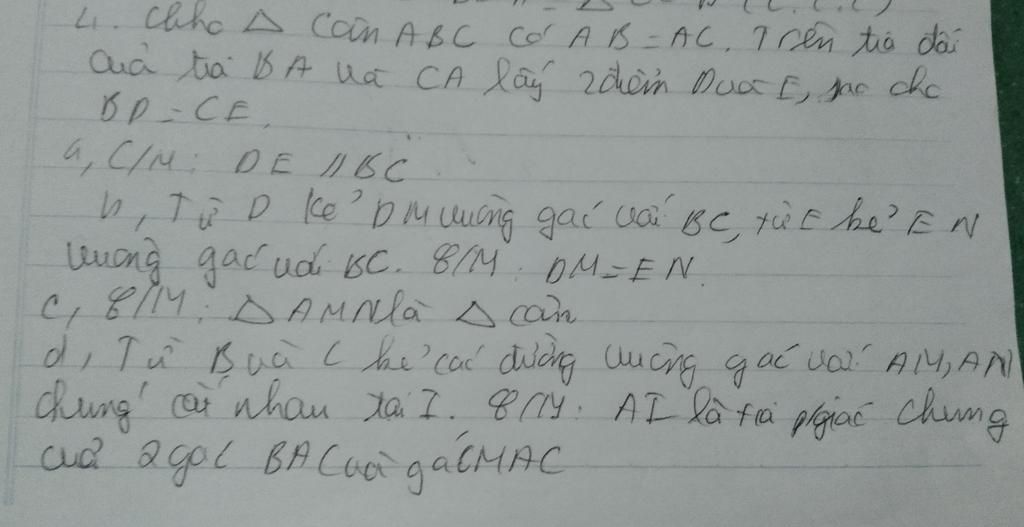 4. Chho △ Cân ABC có AB = AC. Trên tia đối
của tia BA và CA lấy 2 điểm D và E, sao cho
BD = CE.
a, C/M: DE // BC
b, Từ D kẻ DM vuông góc với BC, từ E kẻ EN
vuông góc với BC. C/M: DM = EN.
c, C/M: △ AMN là △ cân
d, Từ B và C kẻ các đường vuông góc với AM, AN
chúng cắt nhau tại I. C/M: AI là tia p/giác chung
của 2 góc BAC và góc MAC